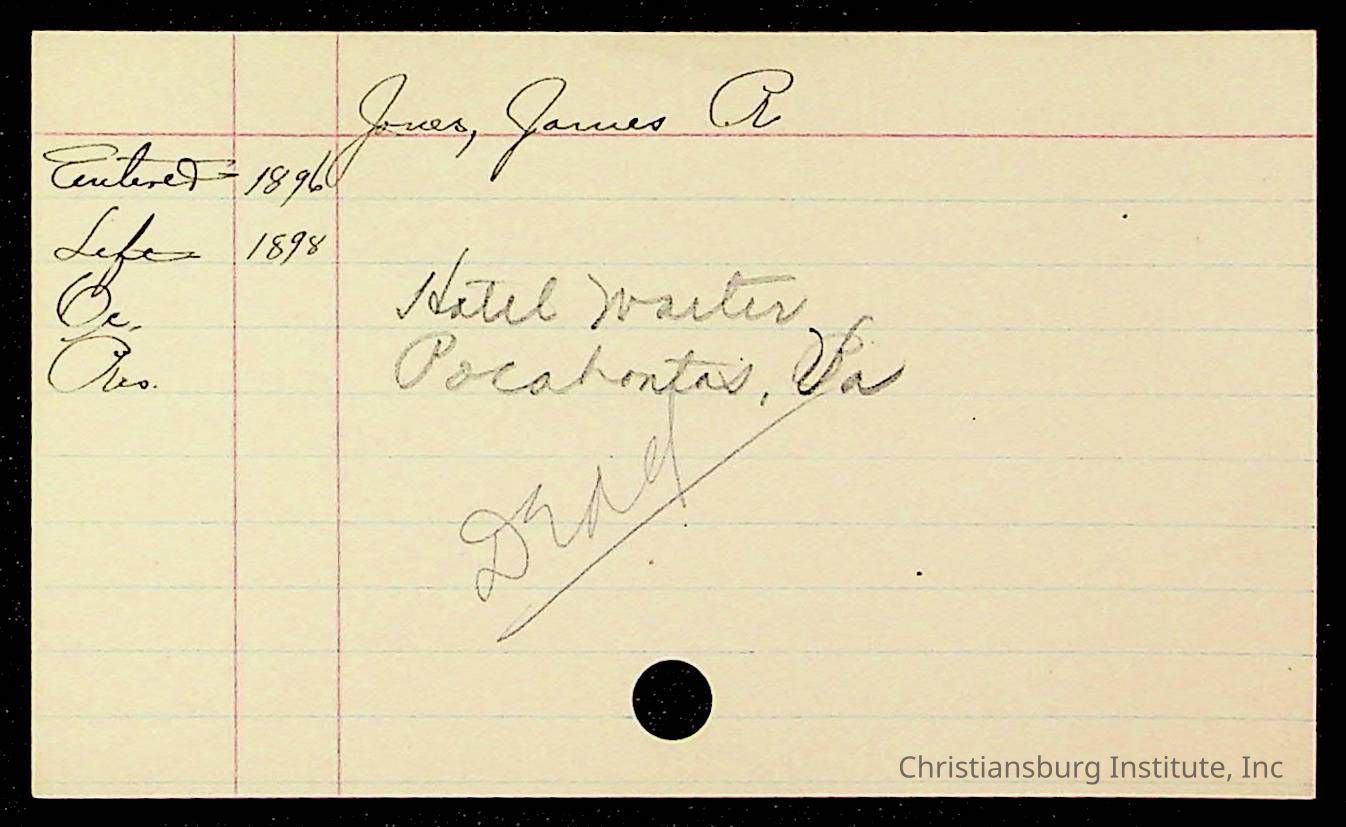 Jones, James R
Entered 1896
Left 1898
Oc. Hotel Waiter
Res. Pocahontas, Va
Dead
Christiansburg Institute, Inc